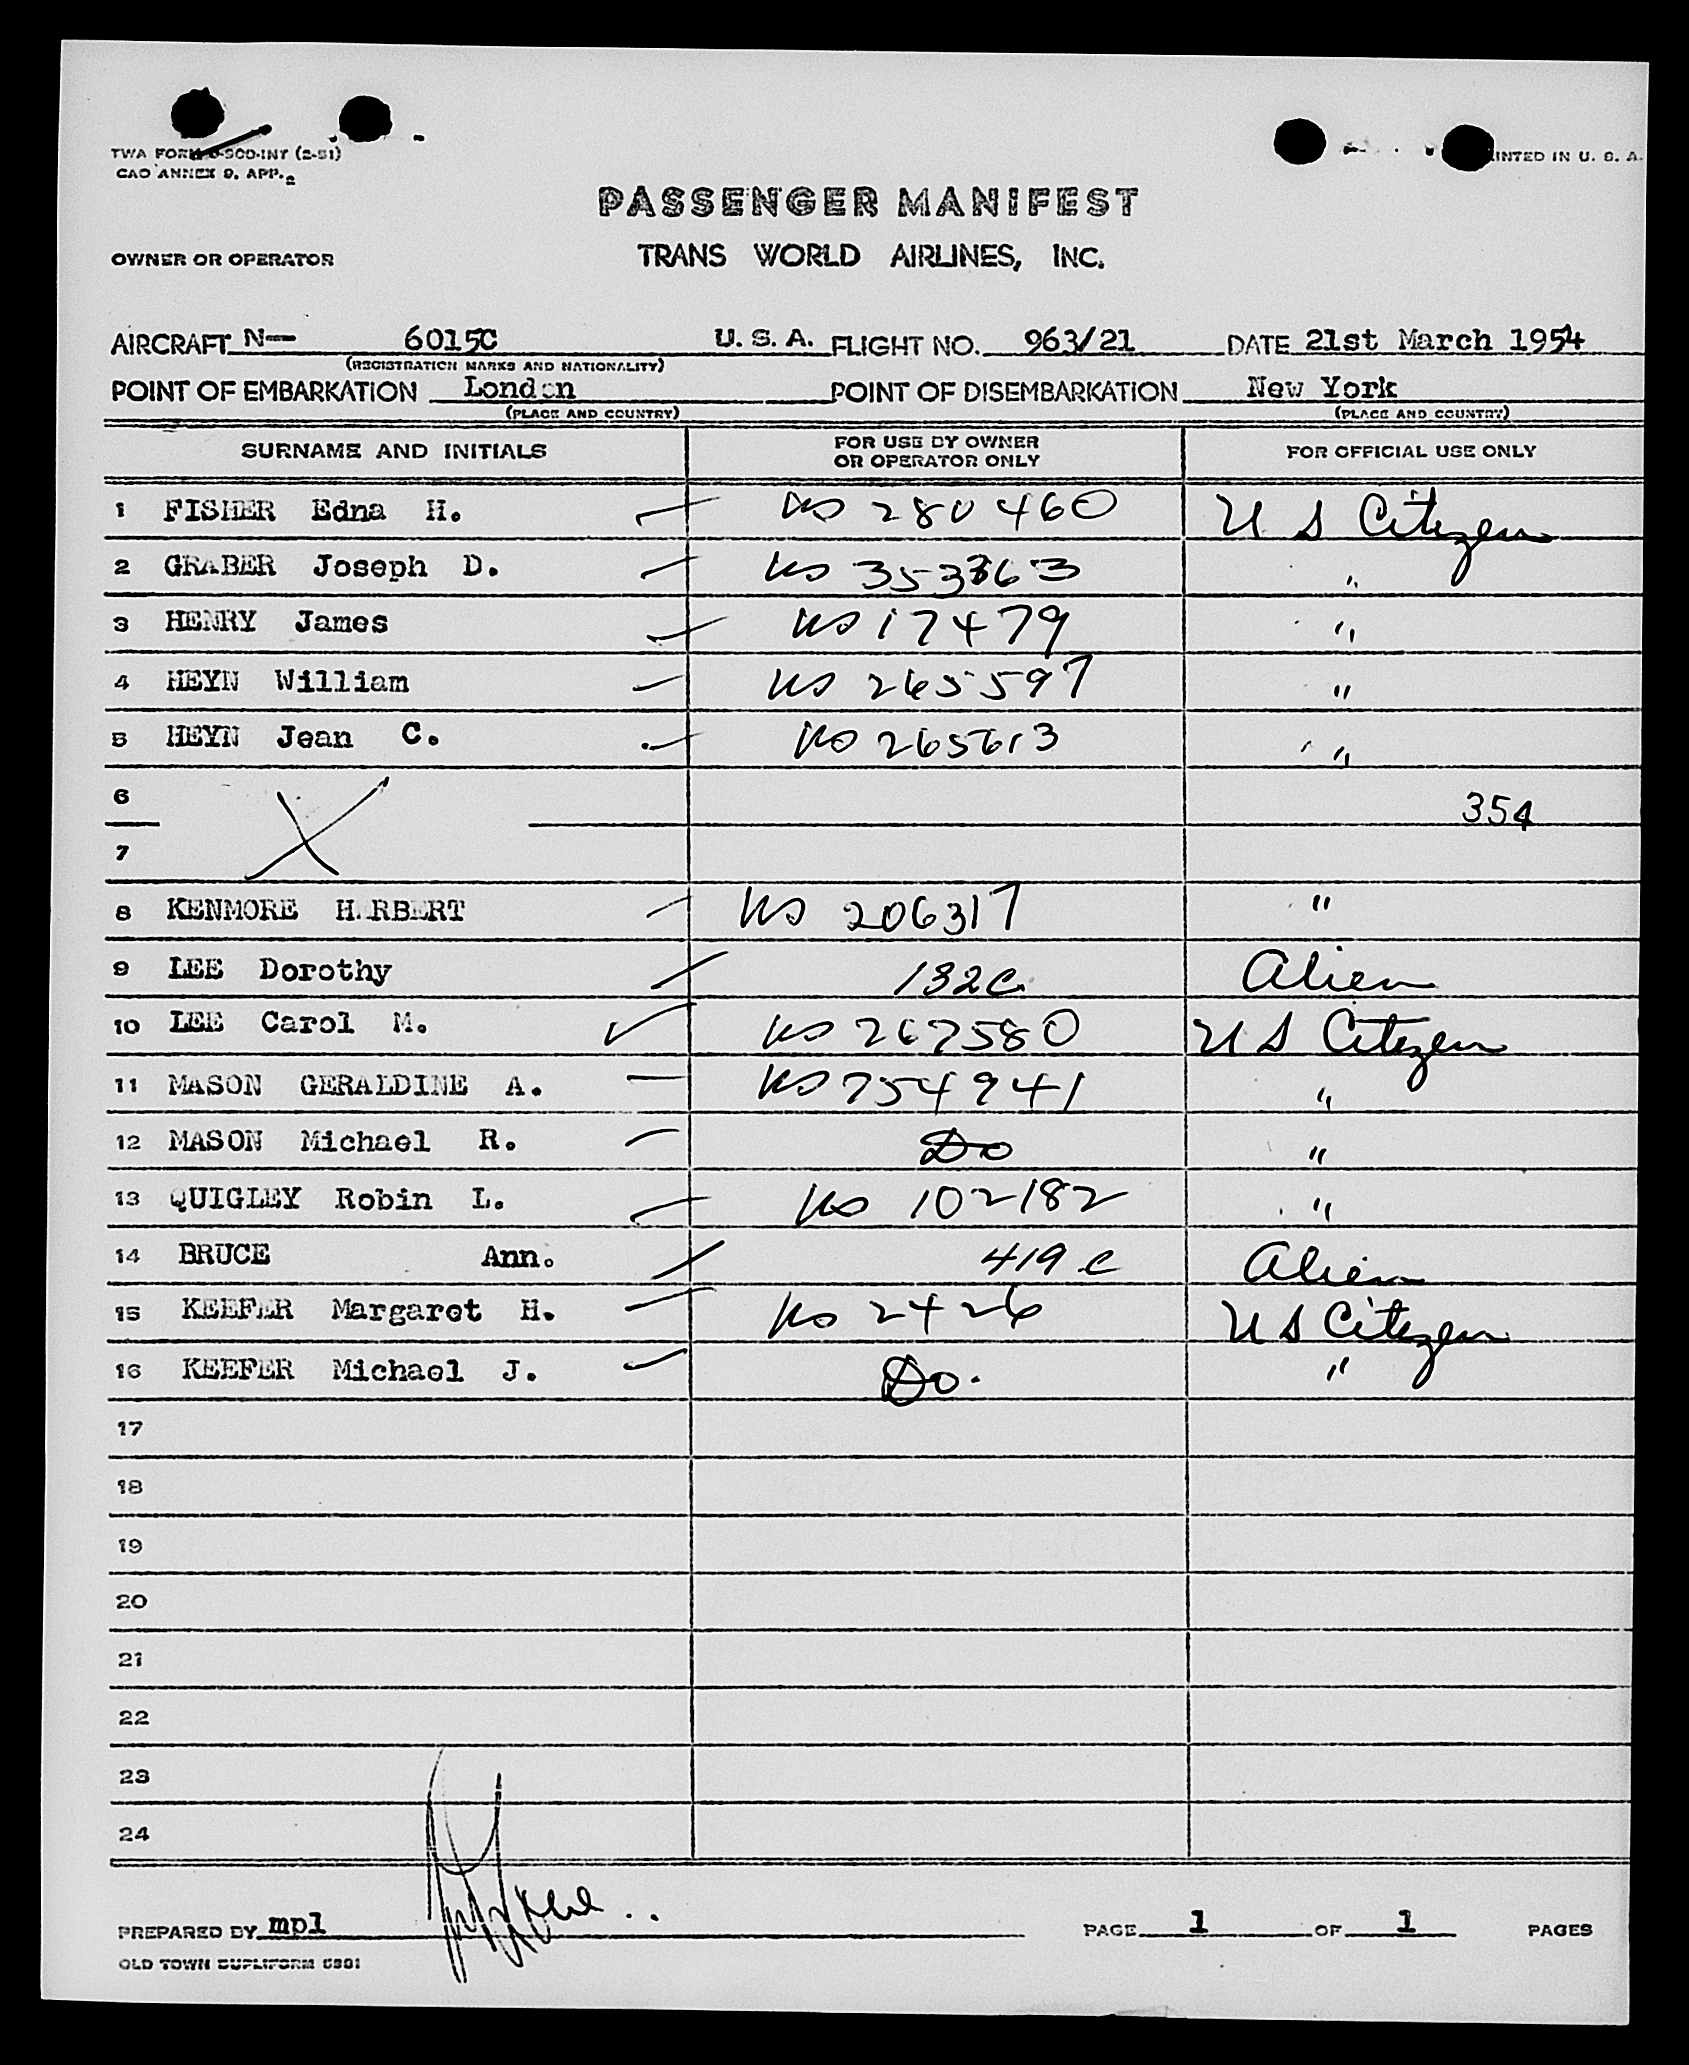 TWA FORM O-900-INT (2-51)
CAO ANNEX 9, APP. 2
PRINTED IN U. S. A.
PASSENGER MANIFEST
OWNER OR OPERATOR TRANS WORLD AIRLINES, INC.
AIRCRAFT N— 6015C U. S. A. FLIGHT NO. 963/21 DATE 21st March 1954
(REGISTRATION MARKS AND NATIONALITY)
POINT OF EMBARKATION London POINT OF DISEMBARKATION New York
(PLACE AND COUNTRY) (PLACE AND COUNTRY)
SURNAME AND INITIALS FOR USE BY OWNER OR OPERATOR ONLY FOR OFFICIAL USE ONLY
1 FISHER Edna H. US 280460 U S Citizen
2 GRABER Joseph D. US 353363 "
3 HENRY James US 17479 "
4 HEYN William US 265597 "
5 HEYN Jean C. US 265613 "
6 354
7
8 KENMORE HERBERT US 206317 "
9 LEE Dorothy 132C Alien
10 LEE Carol M. US 267580 U S Citizen
11 MASON GERALDINE A. US 754941 "
12 MASON Michael R. Do "
13 QUIGLEY Robin L. US 102182 "
14 BRUCE Ann. 419 C Alien
15 KEEFER Margaret H. US 2426 U S Citizen
16 KEEFER Michael J. Do. "
17
18
19
20
21
22
23
24
PREPARED BY mpl PAGE 1 OF 1 PAGES
OLD TOWN DUPLIFORM